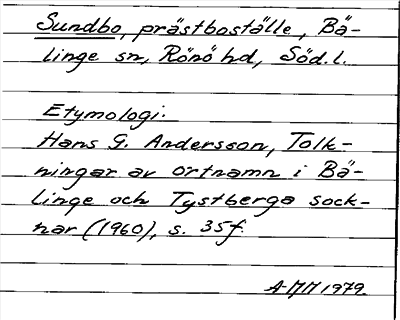 Sundbo, prästboställe, Bä-
linge sn, Rönö hd, Söd.l.
Etymologi:
Hans G. Andersson, Tolk-
ningar av ortnamn i Bä-
linge och Tystberga sock-
nar (1960), s. 35f.
AMM 1979